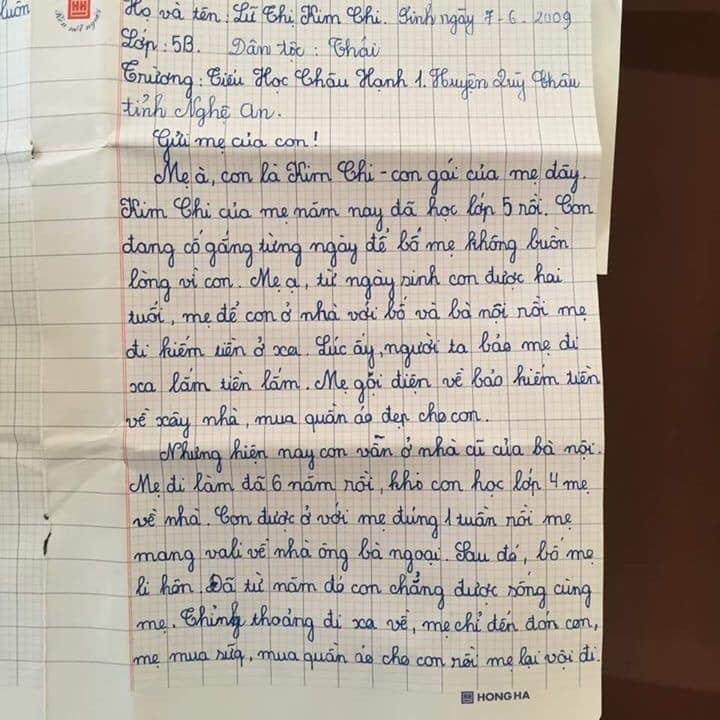 luôn
HK
Nét chữ nết người
Họ và tên : Lữ Thị Kim Chi. Sinh ngày 7 - 6 - 2009
Lớp : 5B. Dân tộc : Thái
Trường : Tiểu Học Châu Hạnh 1. Huyện Quỳ Châu
tỉnh Nghệ An.
Gửi mẹ của con !
Mẹ à, con là Kim Chi - con gái của mẹ đây.
Kim Chi của mẹ năm nay đã học lớp 5 rồi. Con
đang cố gắng từng ngày để bố mẹ không buồn
lòng vì con. Mẹ ạ, từ ngày sinh con được hai
tuổi, mẹ để con ở nhà với bố và bà nội rồi mẹ
đi kiếm tiền ở xa. Lúc ấy, người ta bảo mẹ đi
xa lắm tiền lắm. Mẹ gọi điện về bảo kiếm tiền
về xây nhà, mua quần áo đẹp cho con.
Nhưng hiện nay con vẫn ở nhà cũ của bà nội.
Mẹ đi làm đã 6 năm rồi, khi con học lớp 4 mẹ
về nhà. Con được ở với mẹ đúng 1 tuần rồi mẹ
mang vali về nhà ông bà ngoại. Sau đó, bố mẹ
li hôn. Đã từ năm đó con chẳng được sống cùng
mẹ. Thỉnh thoảng đi xa về, mẹ chỉ đến đón con,
mẹ mua sữa, mua quần áo cho con rồi mẹ lại vội đi.
HK HONG HA